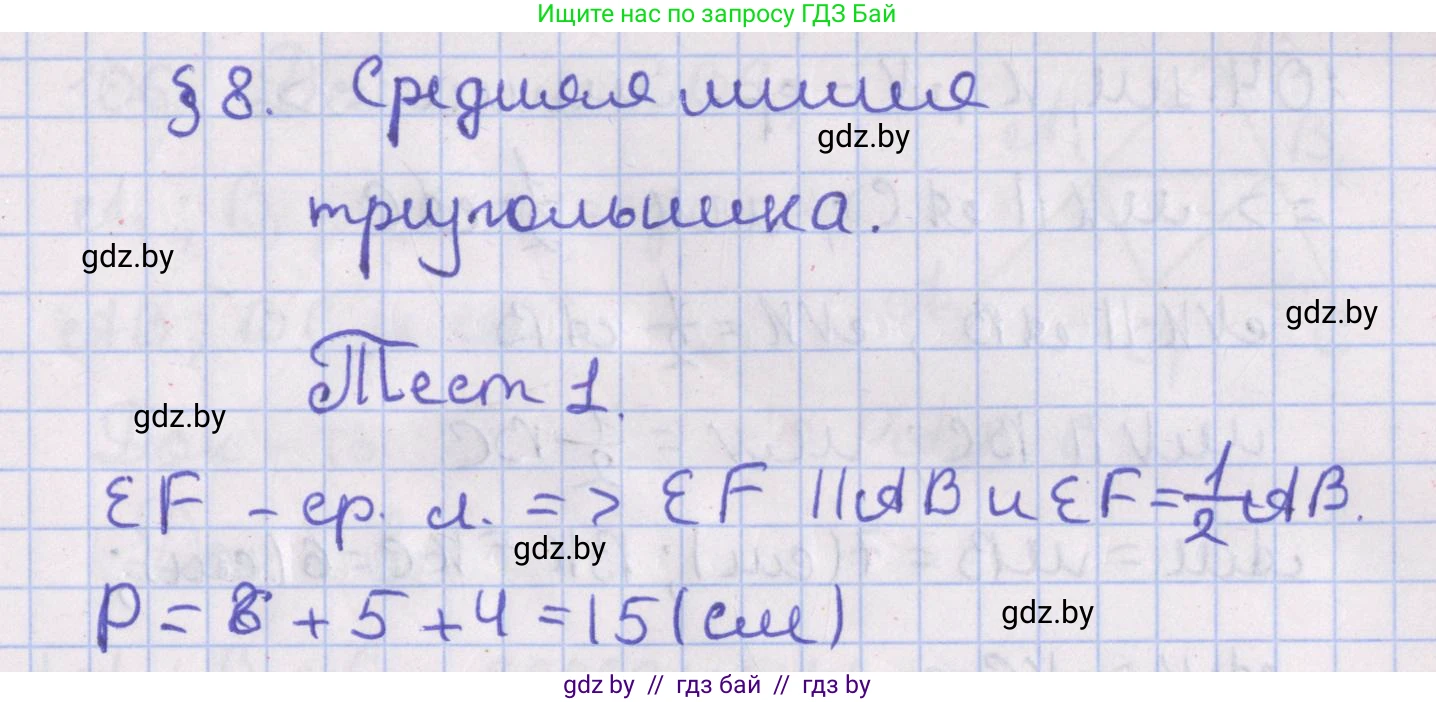 Ищите нас по запросу ГДЗ Бай
§ 8. Средняя линия
gdz.by
треугольника.
gdz.by
gdz.by
Тест 1.
gdz.by
EF - ср. л. => EF || AB и EF = 1/2 AB.
gdz.by
P = 6 + 5 + 4 = 15 (см)
gdz.by
gdz by // гдз бай // гдз by